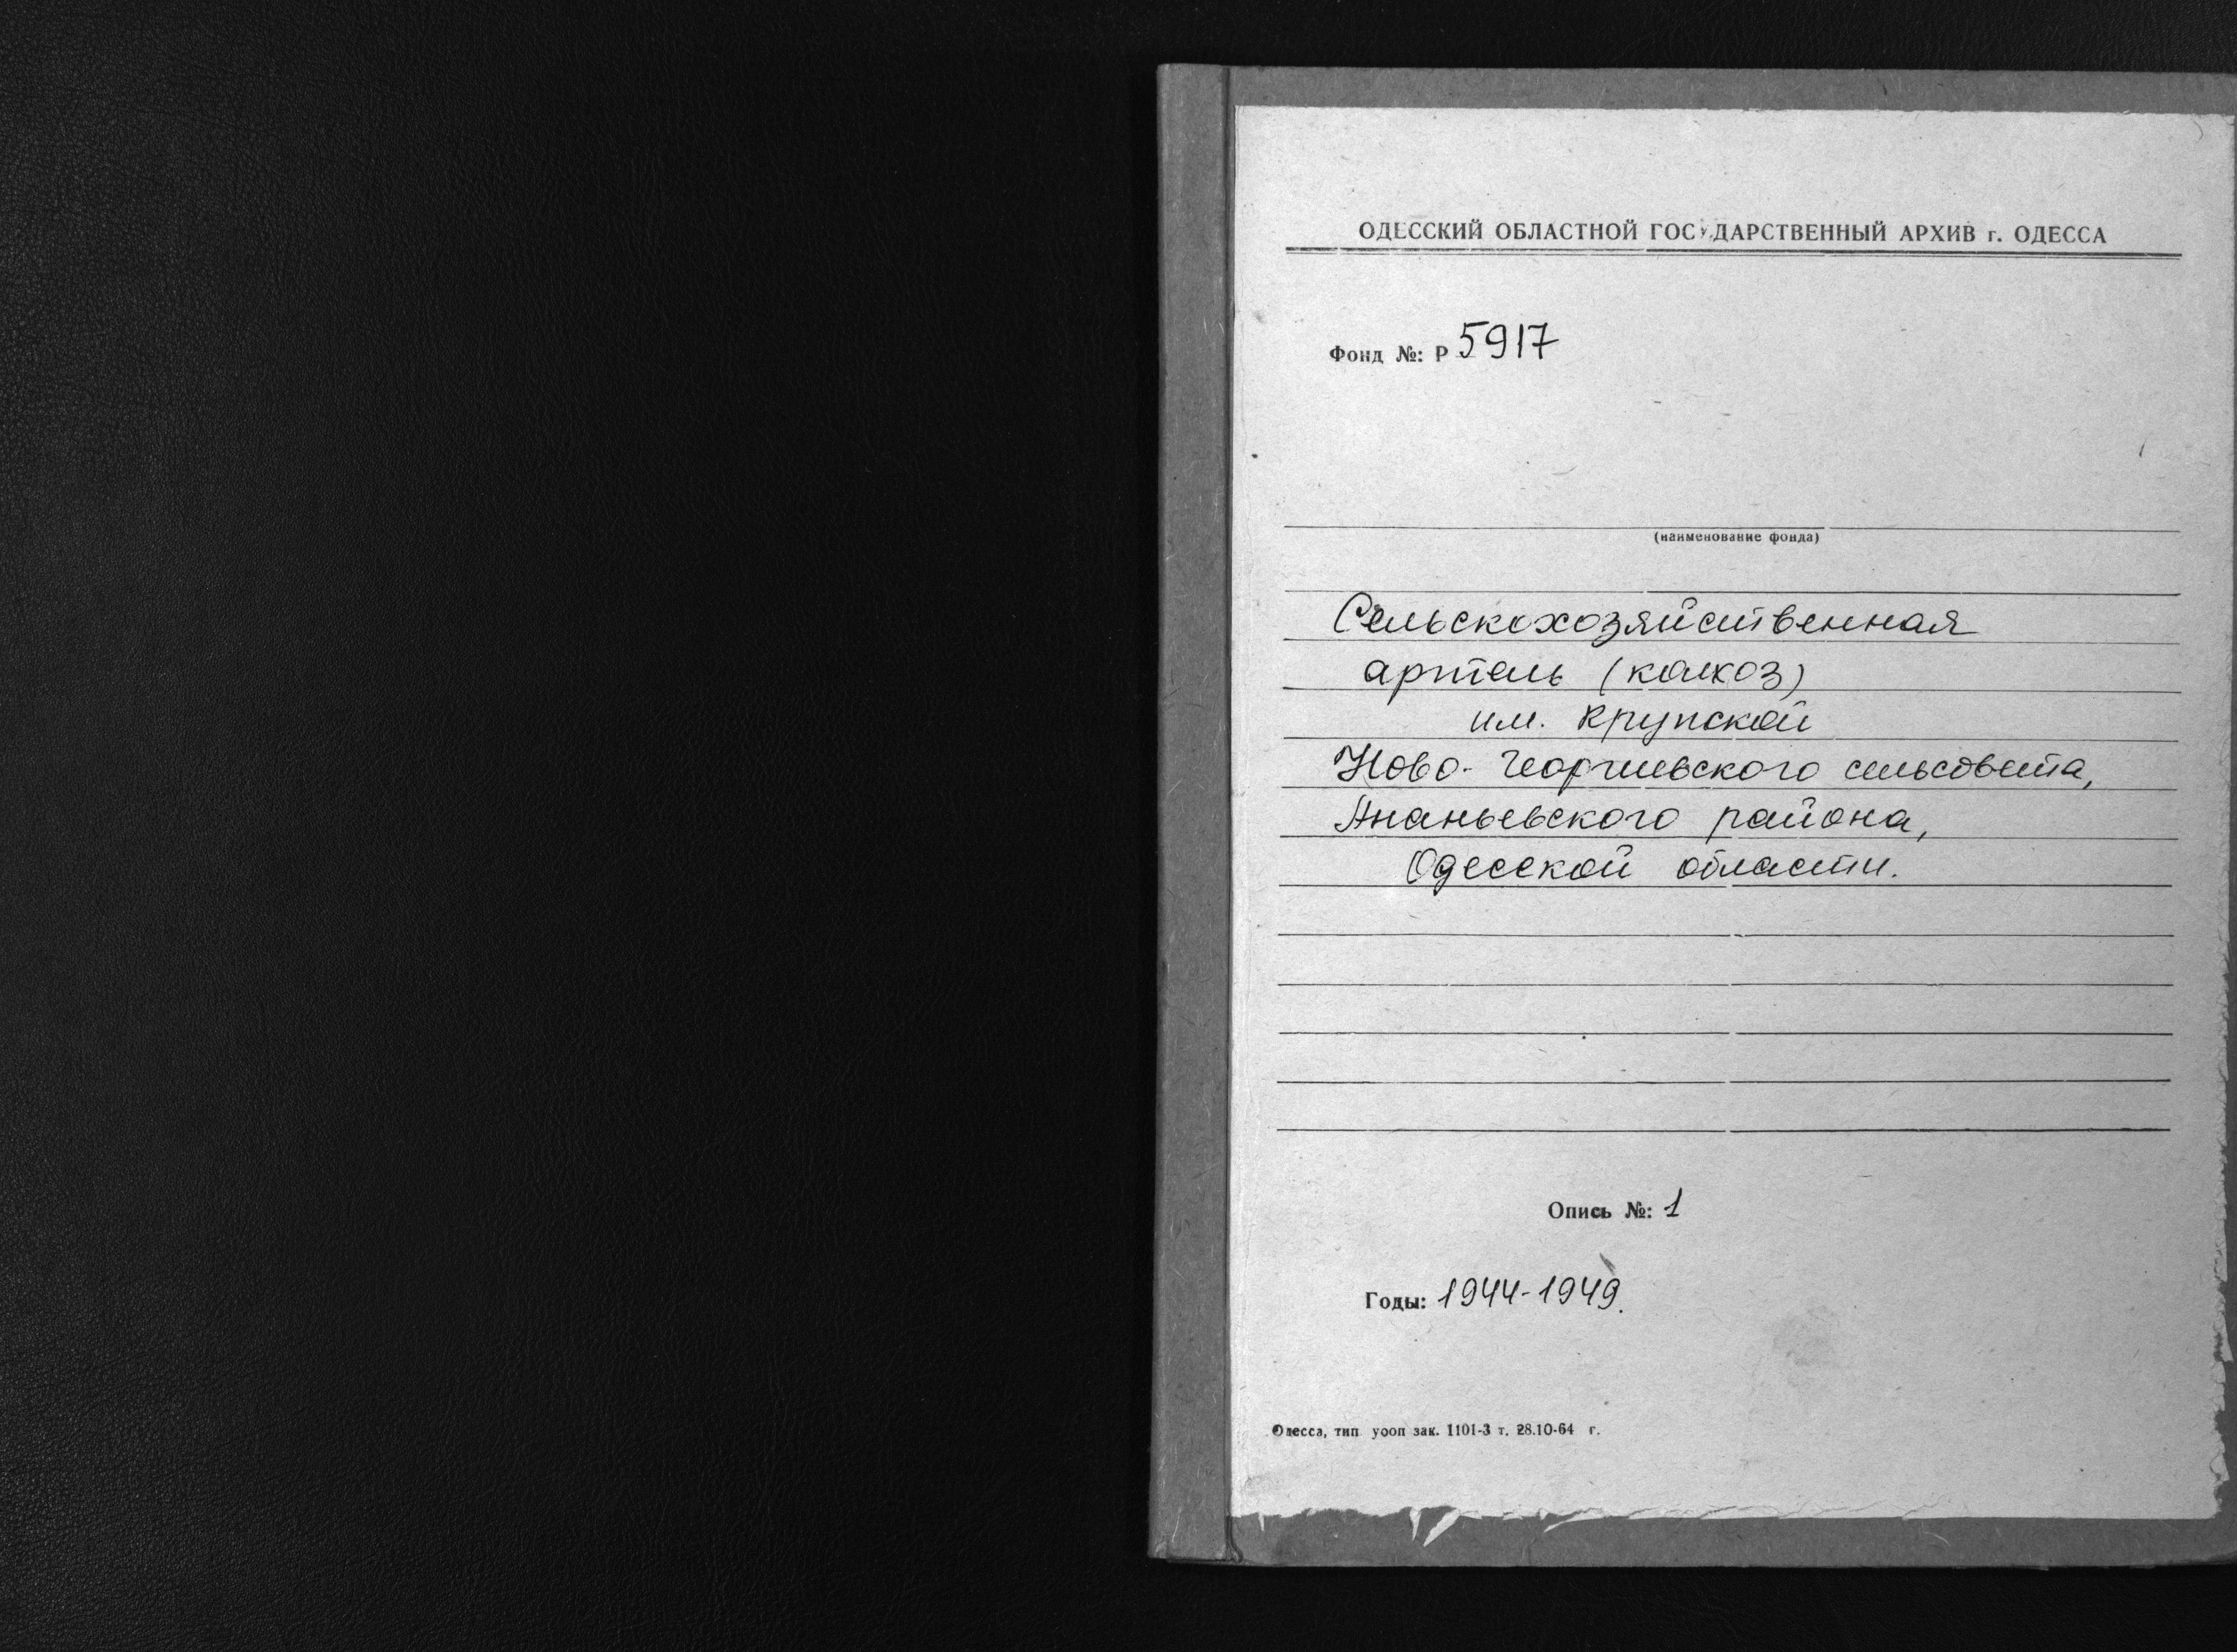 ОДЕССКИЙ ОБЛАСТНОЙ ГОСУДАРСТВЕННЫЙ АРХИВ г. ОДЕССА
Фонд №: Р 5917
(наименование фонда)
Сельскохозяйственная
артель (колхоз)
им. Крупской
Ново-Георгиевского сельсовета,
Ананьевского района,
Одесской области.
Опись №: 1
Годы: 1944-1949.
Одесса, тип уооп зак. 1101-3 т. 28.10-64 г.